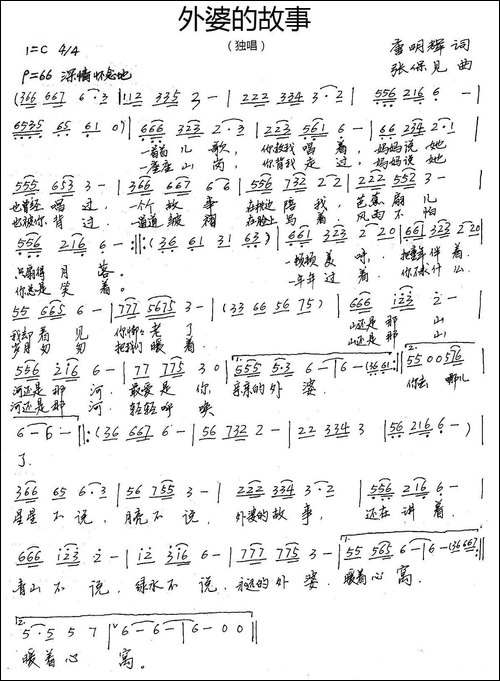 外婆的故事
（独唱）
1=C 4/4
雷明辉 词
P=66 深情怀念地
张保见 曲
(366 667 6·3 | 112 335 3 - | 222 334 3·2 | 556 216 6 - |
6535 65 61 0) | 666 323 2·3 | 223 561 6 - | 66 234 2·1 |
一首首儿歌， 你教我唱着，妈妈说她
一座座山岗， 你背我走过，妈妈说她
555 653 3 - | 366 667 6 6 | 556 732 2 2 | 222 552 3 - |
也曾经唱过，一个个故事 在枕边陪我，芭蕉扇儿
也被你背过，一道道皱褶 在脸上写着，风雨不怕
556 216 6 - :||: (36 61 31 63) | 661 323 2 - 20 | 661 323 2 20 |
只扇得月落。 一顿顿美味，把童年伴着，
你总是笑着。 一年年过着，你不求什么
55 665 6 - | 777 5675 3 - | (33 66 56 75) | 666 123 2 - |
我却看见 你渐渐老了 山还是那山
岁月匆匆 把我们暖着 山还是那山
556 216 6 - | 77 775 3 0 | 1. 555 5·3 6 - | 6 - (3661) :|| 2. 55 00 576 |
河还是那河，最爱是你，亲亲的外婆。 你去哪儿
河还是那河，轻轻呼唤
6 - 6 - ||: (36 667 6 - | 56 732 2 - | 22 334 3 - | 56 216 6 - ) |
了。
366 65 6·3 | 56 755 3 - | 222 334 3·2 | 556 216 6 - |
星星不说，月亮不说，外婆的故事，还在讲着，
666 123 2 - | 12 316 6 - | 777 775 3 - | 1. 55 565 6 - | 6 - (36 667 :||
青山不说，绿水不说，永远的外婆，暖着心窝，
2. 5·5 5 7 | 6 - 6 - | 6 - 0 0 ||
暖着心窝。